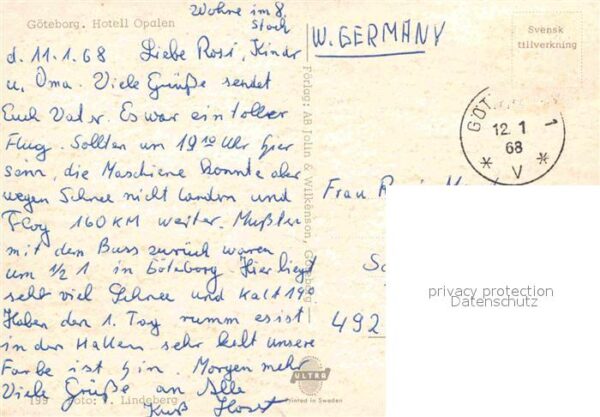 Wohne im 8
Stock
Göteborg. Hotell Opalen
d. 11.1.68 Liebe Rosi, Kinder
u. Oma. Viele Grüße sendet
Euch Vater. Es war ein toller
Flug. Sollten um 19 10 Uhr hier
sein, die Maschiene konnte aber
wegen Schnee nicht landen und
Flog 160 KM weiter. Mußten
mit dem Buss zurück waren
um 1/2 1 in Göteborg Hier liegt
seht viel Schnee und Kalt 19°
Haben den 1. Tag rumm es ist
in der Hallen sehr kalt unsere
Farbe ist hin. Morgen mehr
Viele Grüße an Alle
Kuß Horst
199 Foto: Lindeberg
Förlag: AB Jolin & Wilkenson, Göteborg
W. GERMANY
Svensk
tillverkning
GÖT 1
12. 1
68
* V *
Frau
492
privacy protection
Datenschutz
ULTRA
Printed in Sweden